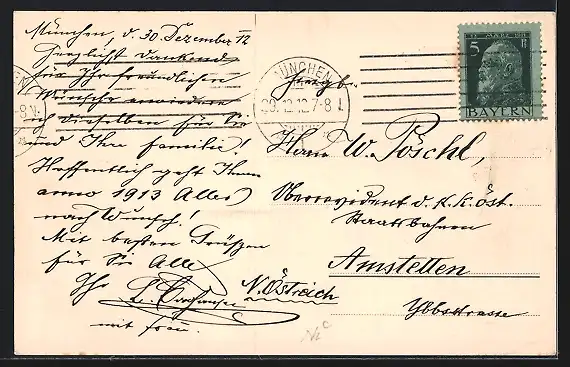 München, d. 30 Dezember 12
Herzlichst dankend
für Ihr freundlichen
Wünsche erwidere
ich dieselben für Sie
und Ihre Familie!
Hoffentlich geht Ihnen
anno 1913 Alles
nach Wunsch!
Mit besten Grüßen
für Sie Alle
Ihr
mit Frau.
MÜNCHEN
30.12.12.7-8
5 Pf
BAYERN
Herrn W. Pöschl,
Oberrevident d. k. k. öst.
Staatsbahnen
Amstetten
N. Östreich
Ybbsstrasse